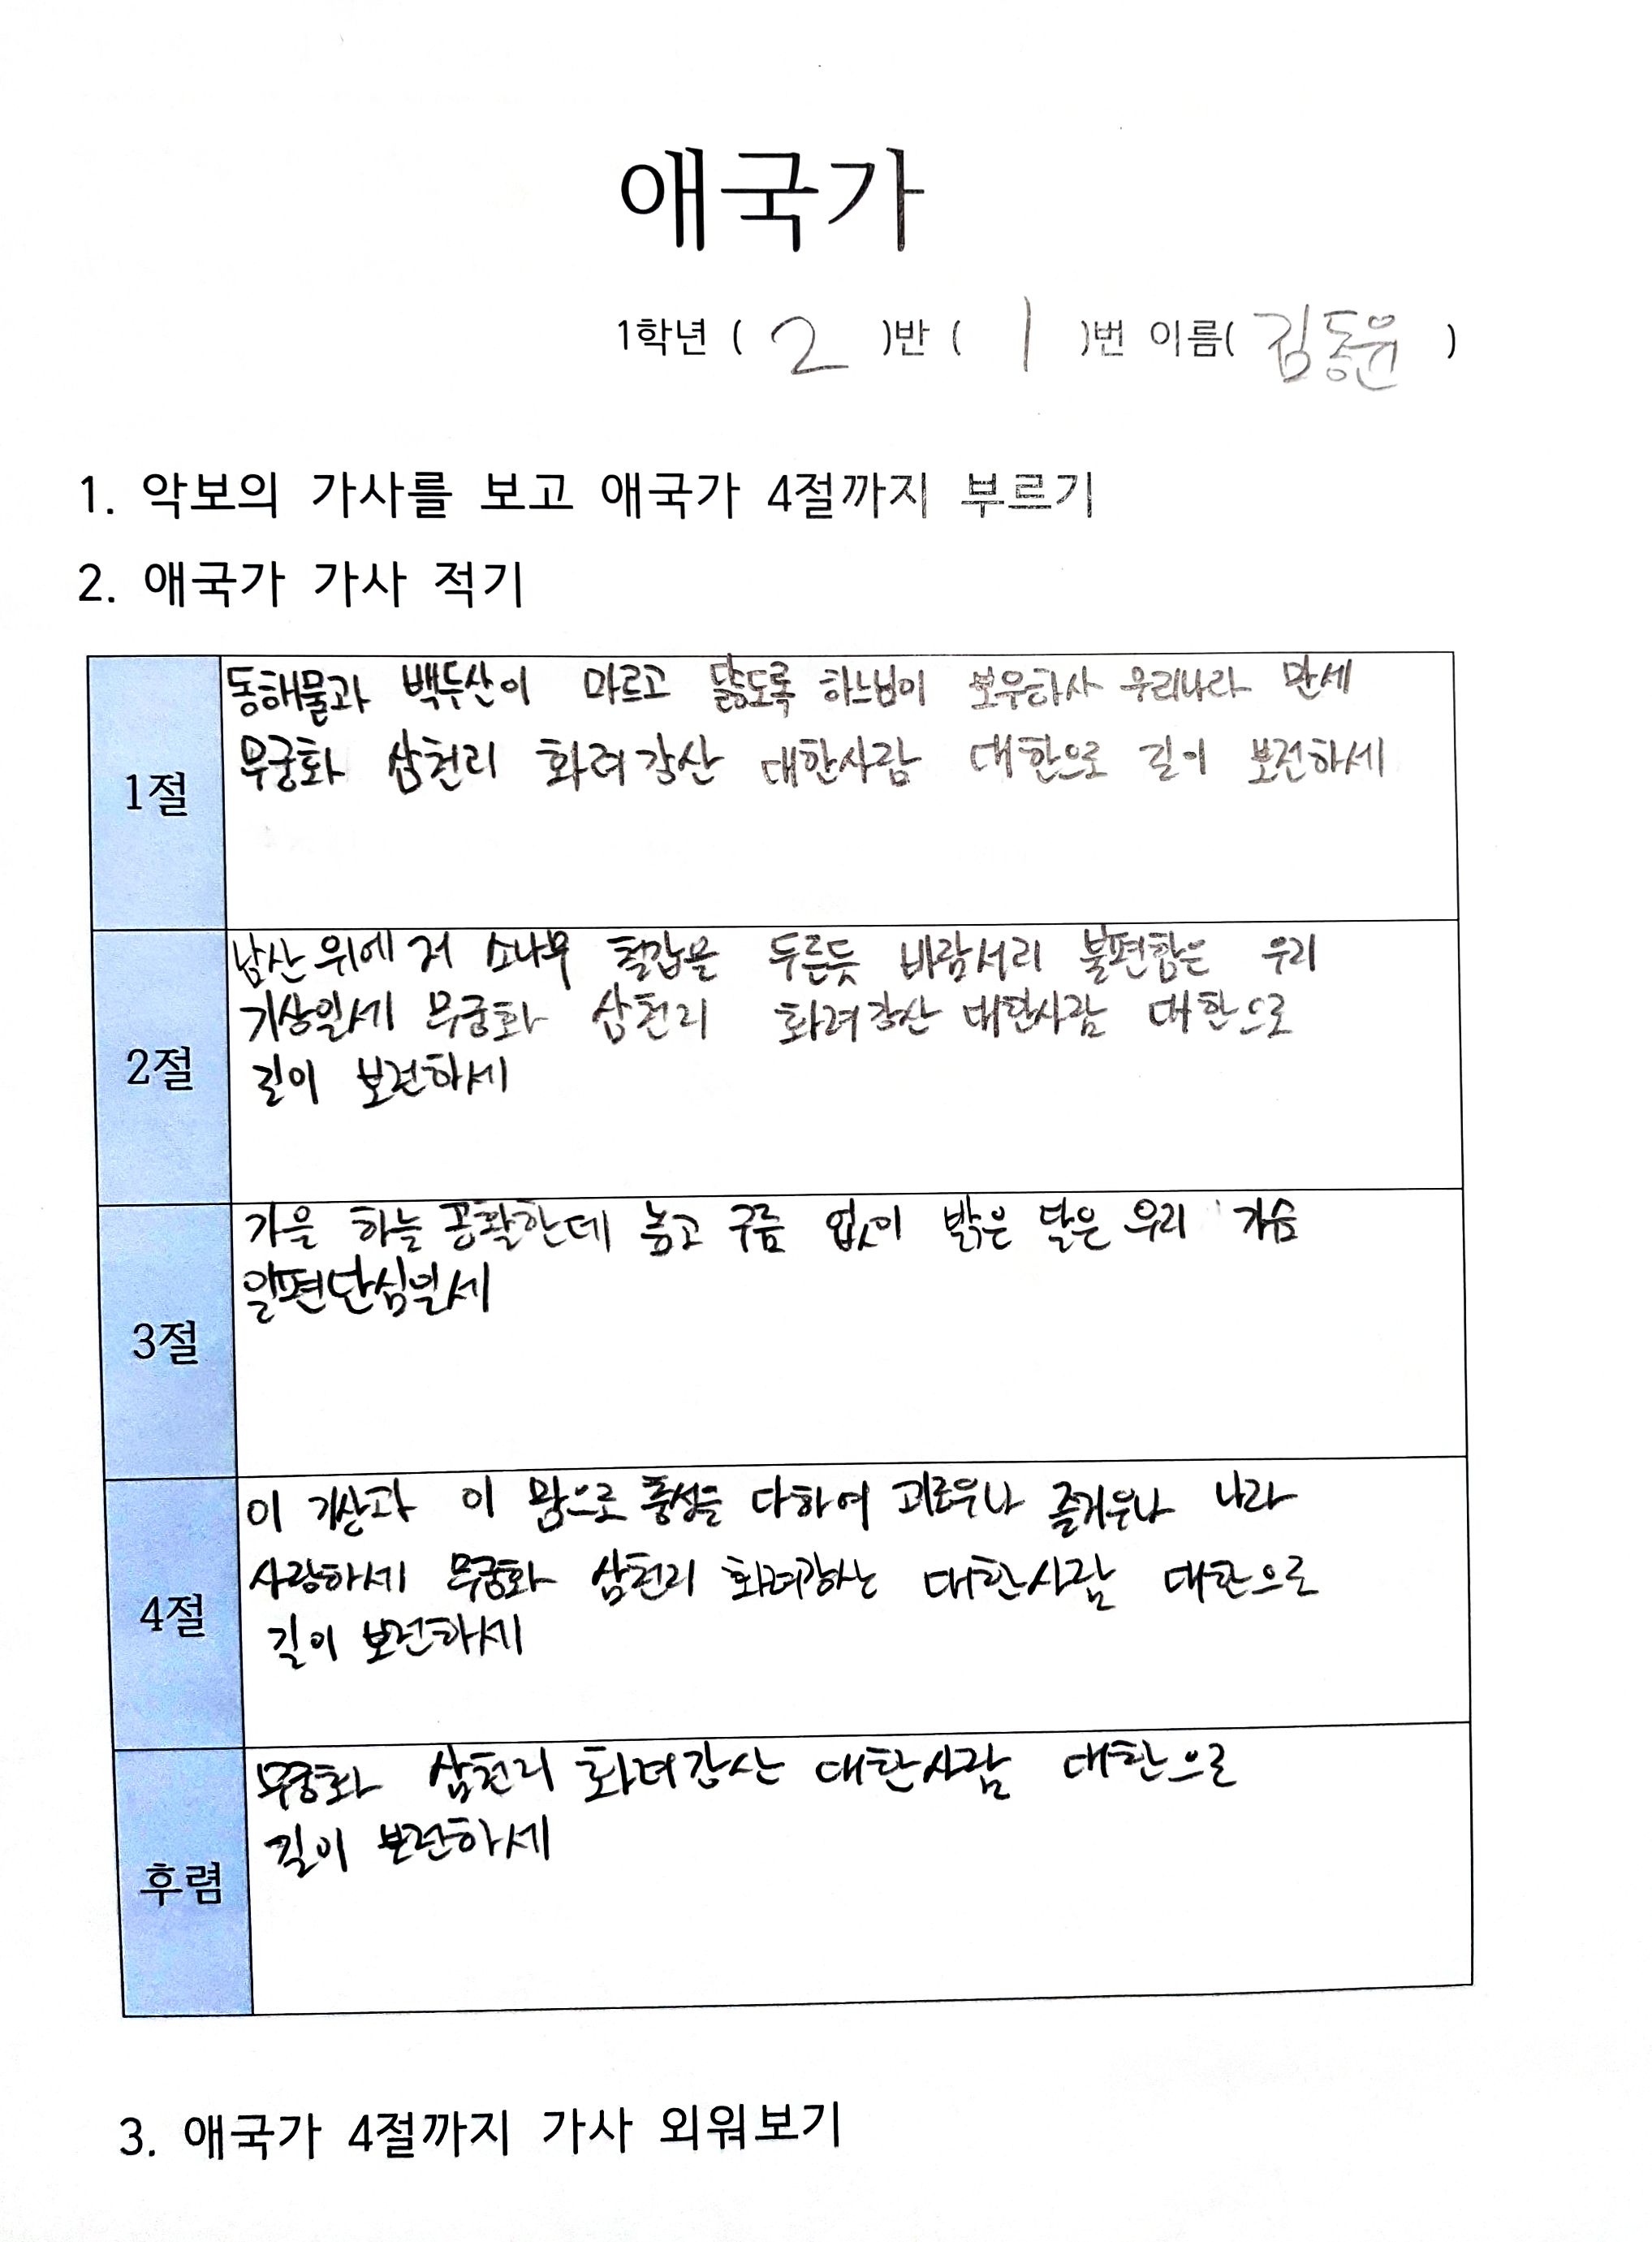 애국가
1학년 ( 2 )반 ( 1 )번 이름( 김동윤 )
1. 악보의 가사를 보고 애국가 4절까지 부르기
2. 애국가 가사 적기
1절
동해물과 백두산이 마르고 닳도록 하느님이 보우하사 우리나라 만세
무궁화 삼천리 화려강산 대한사람 대한으로 길이 보전하세
2절
남산 위에 저 소나무 철갑을 두른듯 바람서리 불편함은 우리
기상일세 무궁화 삼천리 화려강산 대한사람 대한으로
길이 보전하세
3절
가을 하늘 공활한데 높고 구름 없이 밝은 달은 우리 가슴
일편단심일세
4절
이 기상과 이 맘으로 풍성을 다하여 괴로우나 즐거우나 나라
사랑하세 무궁화 삼천리 화려강산 대한사람 대한으로
길이 보전하세
후렴
무궁화 삼천리 화려강산 대한사람 대한으로
길이 보전하세
3. 애국가 4절까지 가사 외워보기